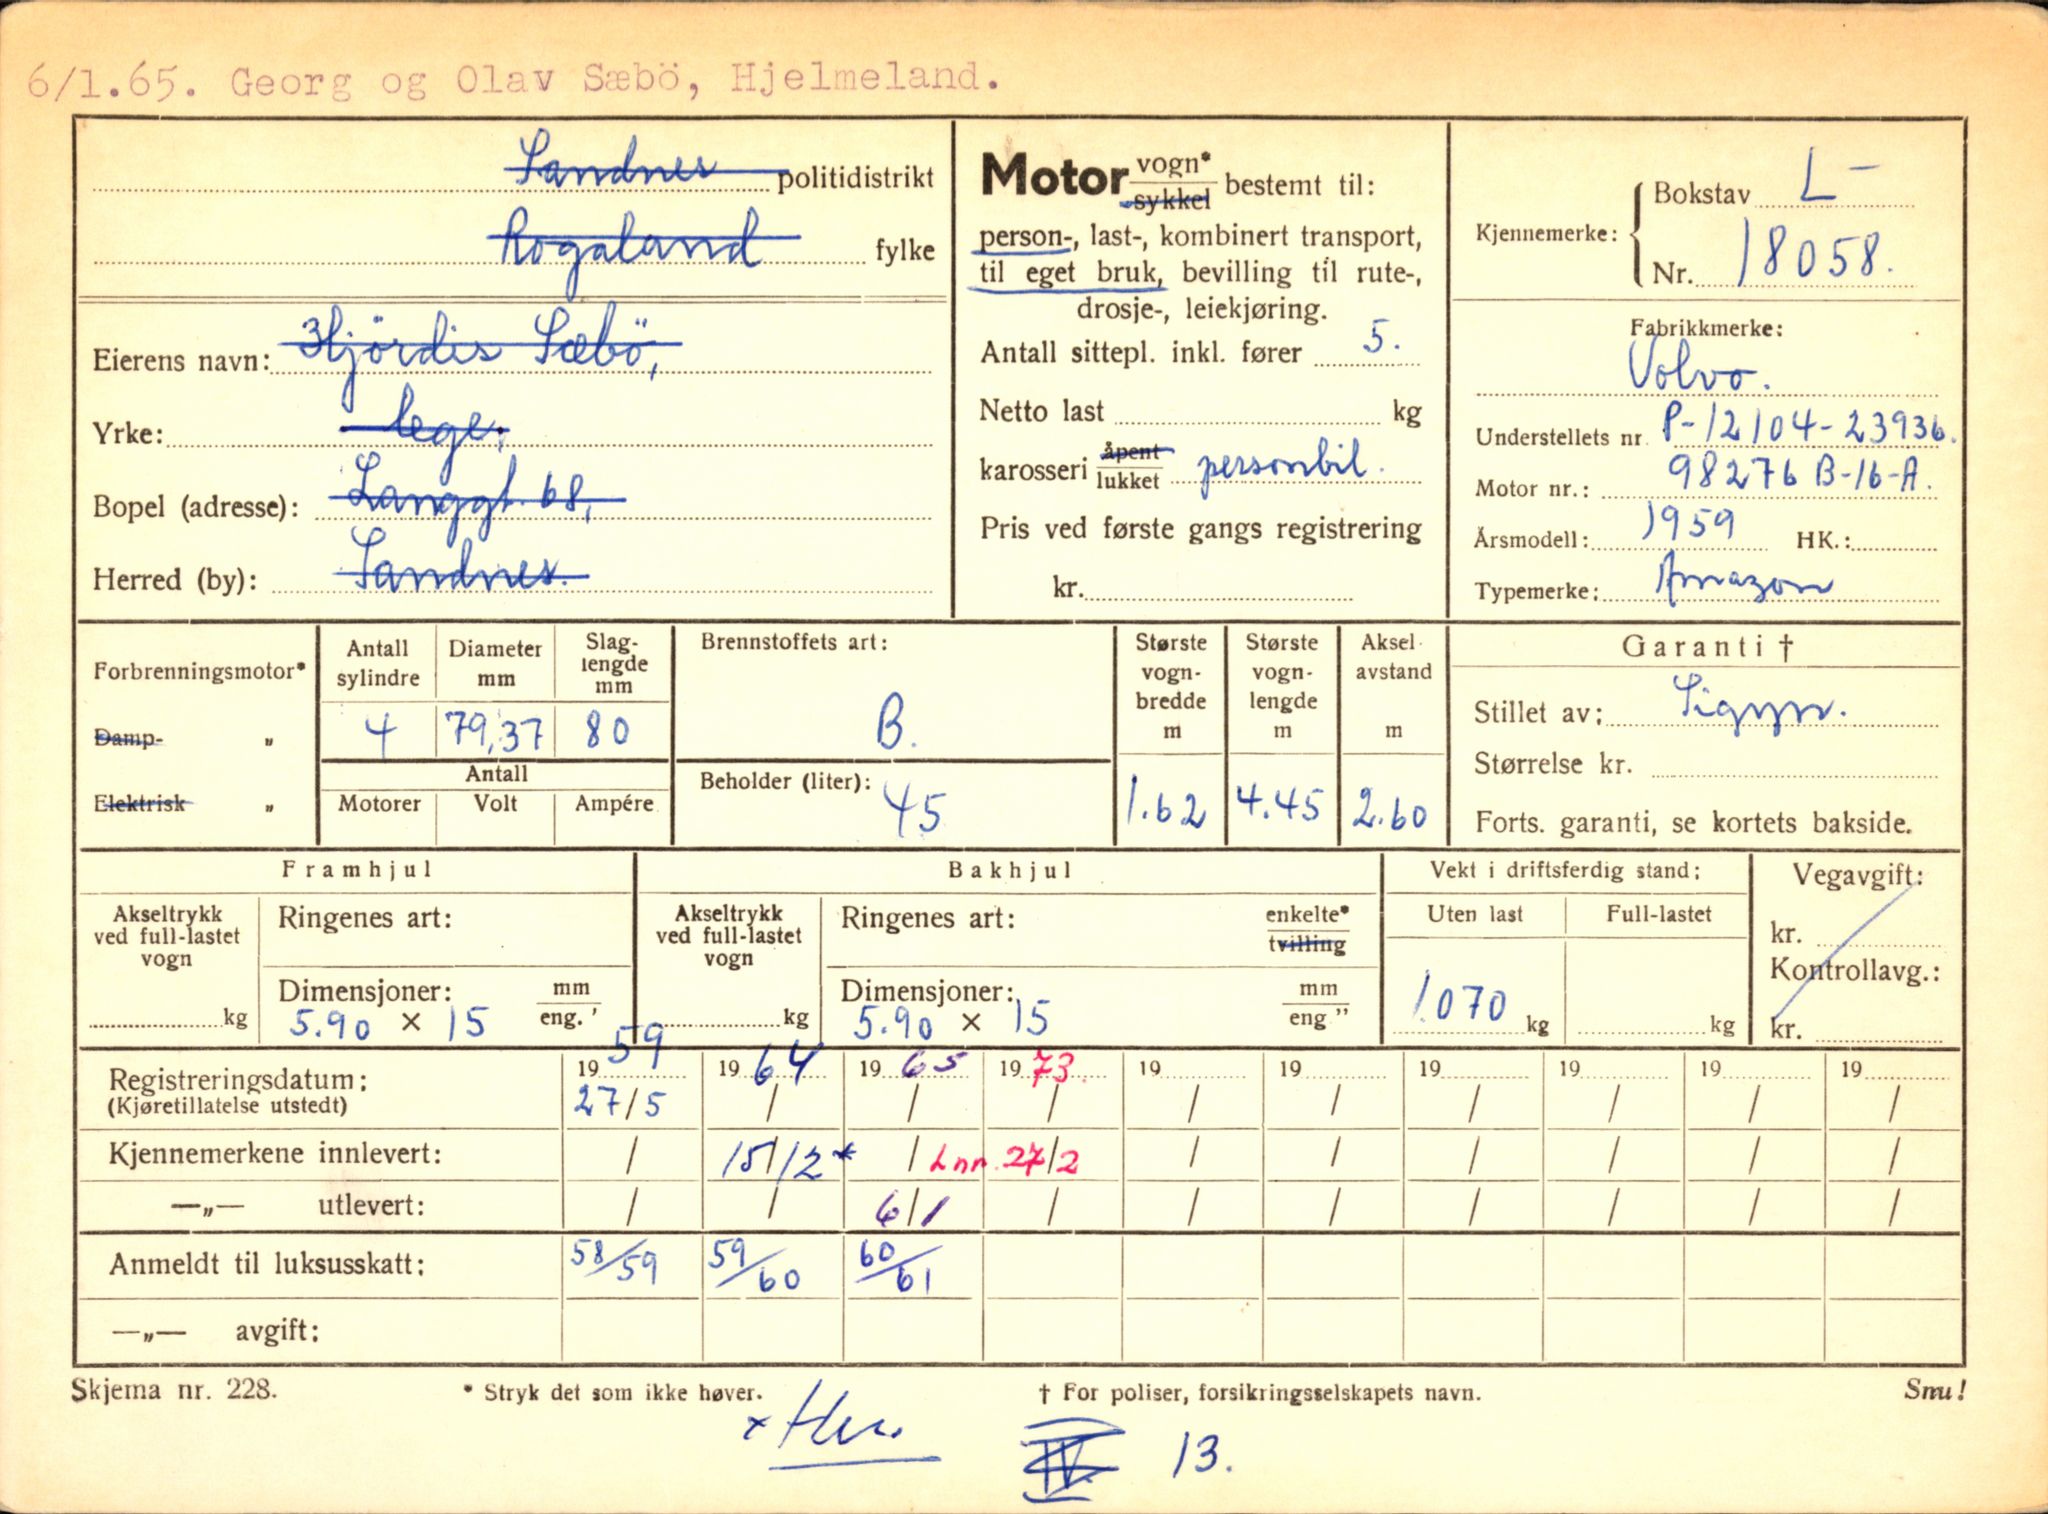 6/1.65. Georg og Olav Sæbö, Hjelmeland.
Sandnes politidistrikt
Rogaland fylke
Eierens navn: Hjördis Sæbö,
Yrke: lege,
Bopel (adresse): Langgt. 68,
Herred (by): Sandnes.
Motor vogn* sykkel bestemt til:
person-, last-, kombinert transport,
til eget bruk, bevilling til rute-,
drosje-, leiekjøring.
Antall sittepl. inkl. fører 5.
Netto last kg
karosseri åpent lukket personbil.
Pris ved første gangs registrering
kr.
Kjennemerke: Bokstav L-
Nr. 18058.
Fabrikkmerke:
Volvo.
Understellets nr. P-12104-23936.
Motor nr.: 98276 B-16-A.
Årsmodell: 1959 HK.:
Typemerke: Amazon
Forbrenningsmotor*
Damp- „
Elektrisk „
Antall sylindre Diameter mm Slag-lengde mm
4 79,37 80
Antall
Motorer Volt Ampére
Brennstoffets art:
B.
Beholder (liter):
45
Største vogn-bredde m
1.62
Største vogn-lengde m
4.45
Aksel-avstand m
2.60
Garanti †
Stillet av: Sigyn.
Størrelse kr.
Forts. garanti, se kortets bakside.
Framhjul
Akseltrykk ved full-lastet vogn
kg
Ringenes art:
Dimensjoner: mm
5.90 × 15 eng. '
Bakhjul
Akseltrykk ved full-lastet vogn
kg
Ringenes art: enkelte* tvilling
Dimensjoner: mm
5.90 × 15 eng "
Vekt i driftsferdig stand:
Uten last Full-lastet
1.070 kg kg
Vegavgift:
kr.
Kontrollavg.:
kr.
Registreringsdatum: 1959 1964 1965 1973. 19 19 19 19 19 19
(Kjøretillatelse utstedt) 27/5 / / / / / / / / /
Kjennemerkene innlevert: / 15/12* / Inn. 27/2 / / / / / /
—„— utlevert: / / 6/1 / / / / / / /
Anmeldt til luksusskatt: 58/59 59/60 60/61
—„— avgift:
Skjema nr. 228. * Stryk det som ikke høver. † For poliser, forsikringsselskapets navn. Snu!
IV 13.